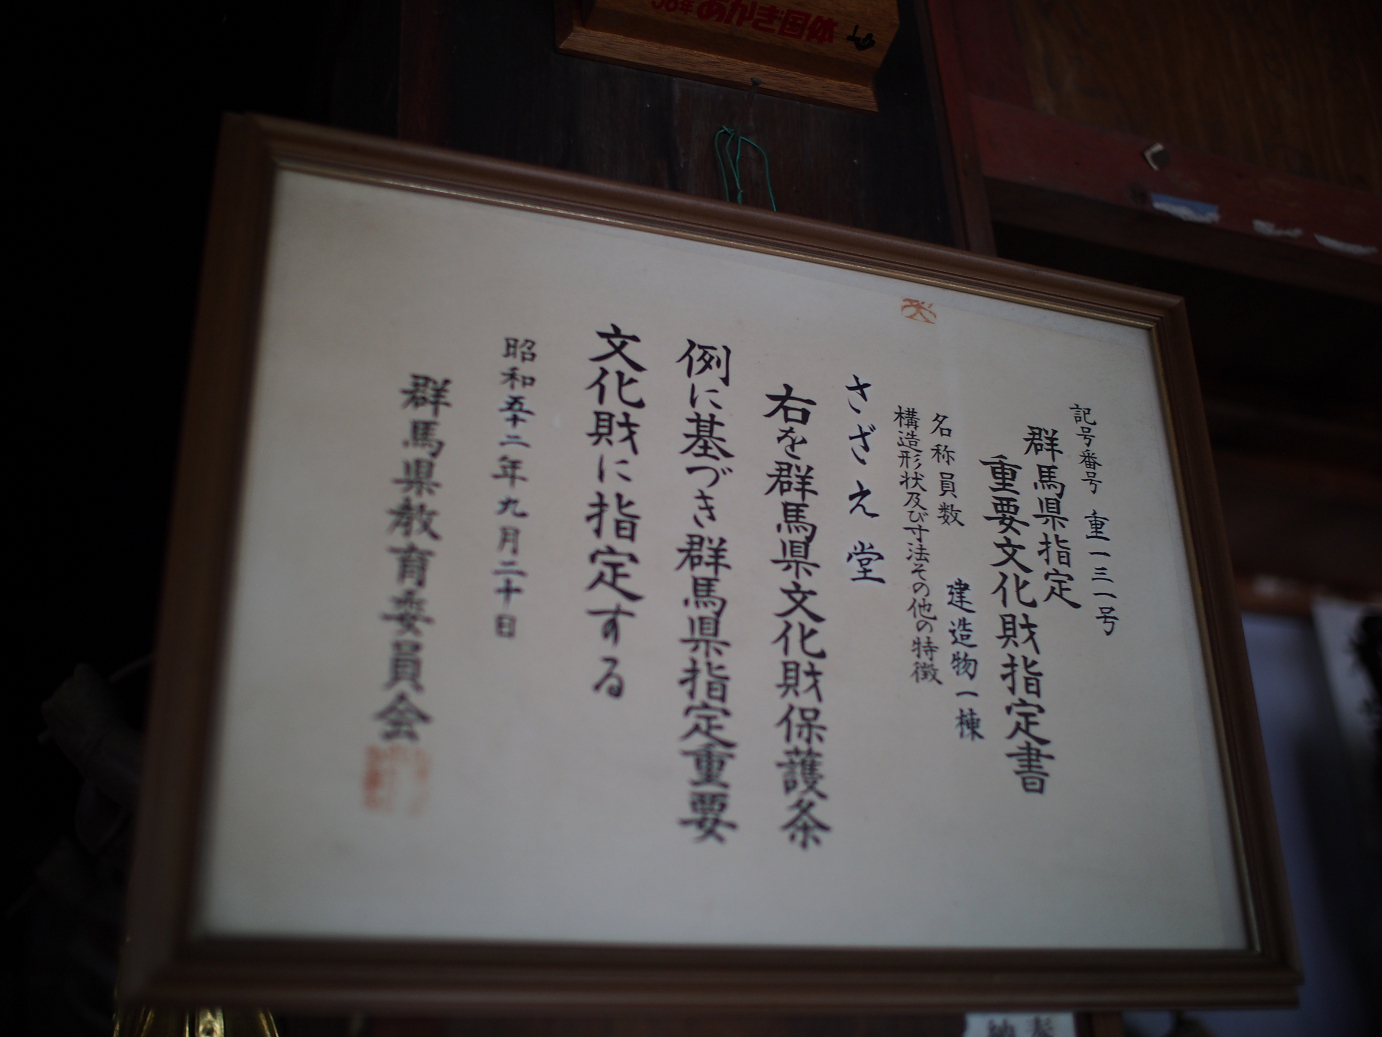 58年あかぎ国体
記号番号 重一三一号
群馬県指定
重要文化財指定書
名称員数 建造物一棟
構造形状及び寸法その他の特徴
さざえ堂
右を群馬県文化財保護条
例に基づき群馬県指定重要
文化財に指定する
昭和五十二年九月二十日
群馬県教育委員会